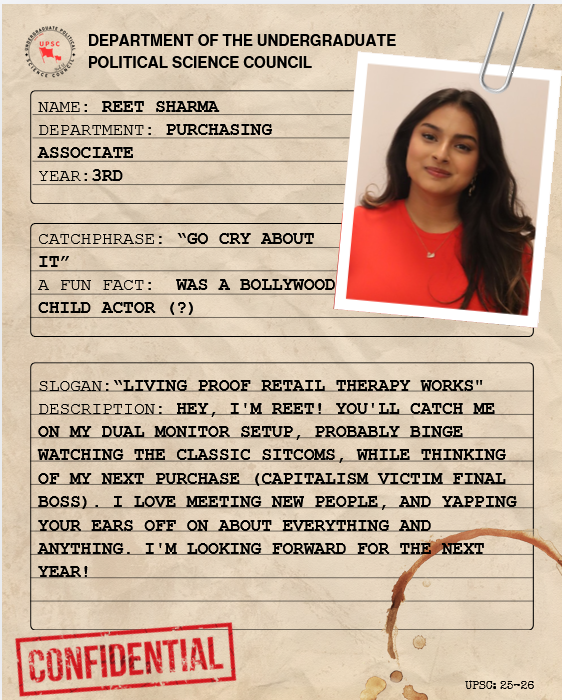 UNDERGRADUATE POLITICAL
UPSC
SCIENCE COUNCIL
DEPARTMENT OF THE UNDERGRADUATE
POLITICAL SCIENCE COUNCIL
NAME: REET SHARMA
DEPARTMENT: PURCHASING
ASSOCIATE
YEAR:3RD
CATCHPHRASE: “GO CRY ABOUT
IT”
A FUN FACT: WAS A BOLLYWOOD
CHILD ACTOR (?)
SLOGAN:“LIVING PROOF RETAIL THERAPY WORKS"
DESCRIPTION: HEY, I'M REET! YOU'LL CATCH ME
ON MY DUAL MONITOR SETUP, PROBABLY BINGE
WATCHING THE CLASSIC SITCOMS, WHILE THINKING
OF MY NEXT PURCHASE (CAPITALISM VICTIM FINAL
BOSS). I LOVE MEETING NEW PEOPLE, AND YAPPING
YOUR EARS OFF ON ABOUT EVERYTHING AND
ANYTHING. I'M LOOKING FORWARD FOR THE NEXT
YEAR!
CONFIDENTIAL
UPSC: 25-26